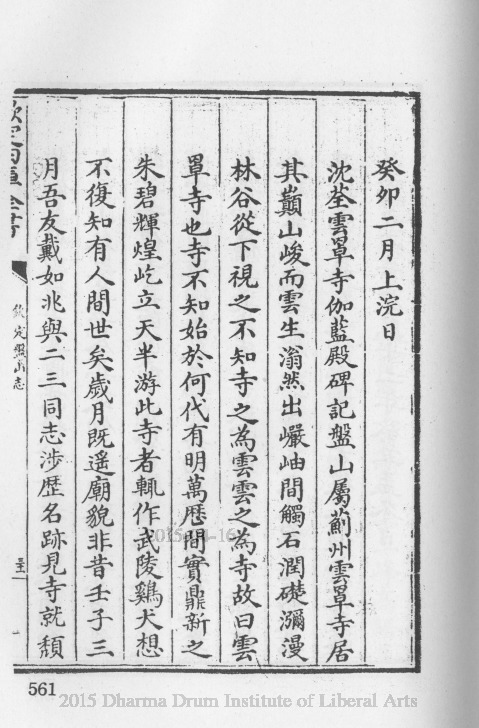 癸卯二月上浣日
沈荃雲罩寺伽藍殿碑記盤山屬薊州雲罩寺居
其巔山峻而雲生滃然出巖岫間觸石潤礎瀰漫
林谷從下視之不知寺之為雲雲之為寺故曰雲
罩寺也寺不知始於何代有明萬厯間實鼎新之
朱碧輝煌屹立天半游此寺者輒作武陵鷄犬想
不復知有人間世矣歲月既遥廟貌非昔壬子三
月吾友戴如兆與二三同志涉歴名跡見寺就頽
欽定四庫全書
欽定盤山志
561
2015 Dharma Drum Institute of Liberal Arts